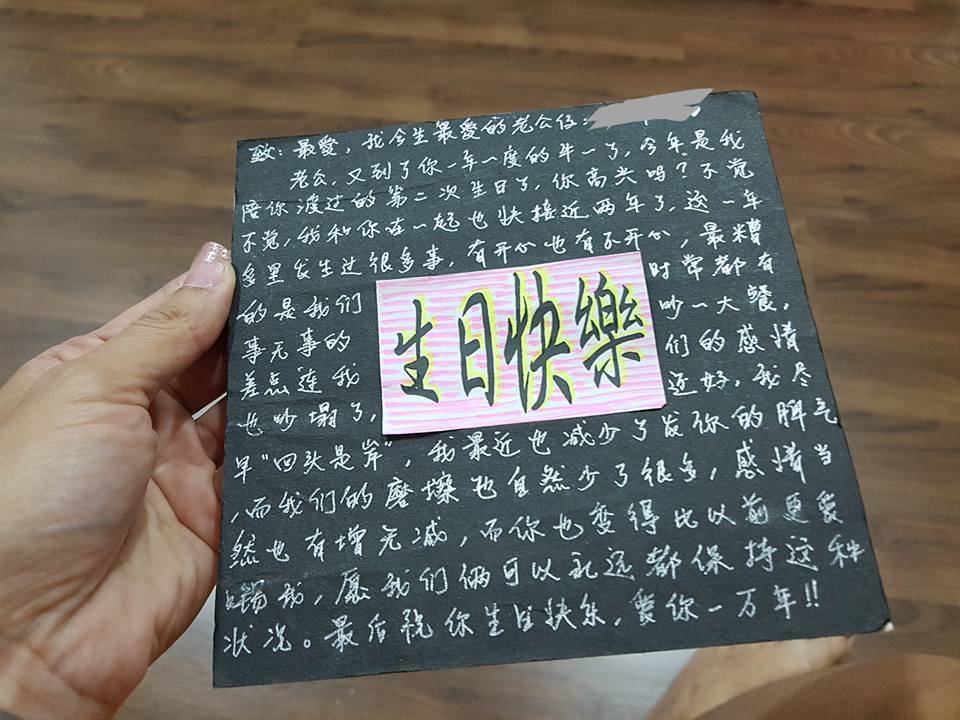 致：最愛，我今生最愛的老公仔：
老公，又到了你一年一度的牛一了，今年是我
陪你渡过的第二次生日了，你高兴吗？不觉
不觉，我和你在一起也快接近两年了，这一年
多里发生过很多事，有开心也有不开心，最糟
的是我们 时常都有
事无事的 吵一大餐，
差点连我 们的感情
也吵塌了， 还好，我尽
早“回头是岸”，我最近也减少了发你的脾气
，而我们的磨擦也自然少了很多，感情当
然也有增无减，而你也变得比以前更爱
锡我，愿我们俩可以永远都保持这种
状况。最后祝你生日快乐，爱你一万年!!
生日快樂